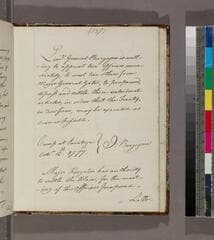 (137)
Lieut. General Burgoyne is will-
ing to appoint two Officers imme-
diately, to meet two others from
Major General Gates, to propound,
discuss and settle those subordinate
articles, in order that this Treaty,
in due form, may be executed as
soon as possible.
Camp at Saratoga
Octr. 15. 1777
J Burgoyne
Major Kingston has authority
to settle the Place for the meet-
ing of the Officers proposed.
Letter